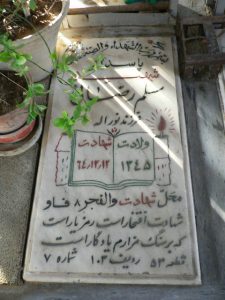 بسم رب الشهداء و الصدیقین
پاسدار
شهید
مسلم
فرزند نوراله
ولادت شهادت
۱۳۴۵ ۶۴,۱۲,۱۲
محل شهادت والفجر ۸ فاو
شهادت افتخارات رمز یار است
که بر سنگ مزارم یادگار است
قطعه ۵۳ ردیف ۱۰۳ شماره ۷